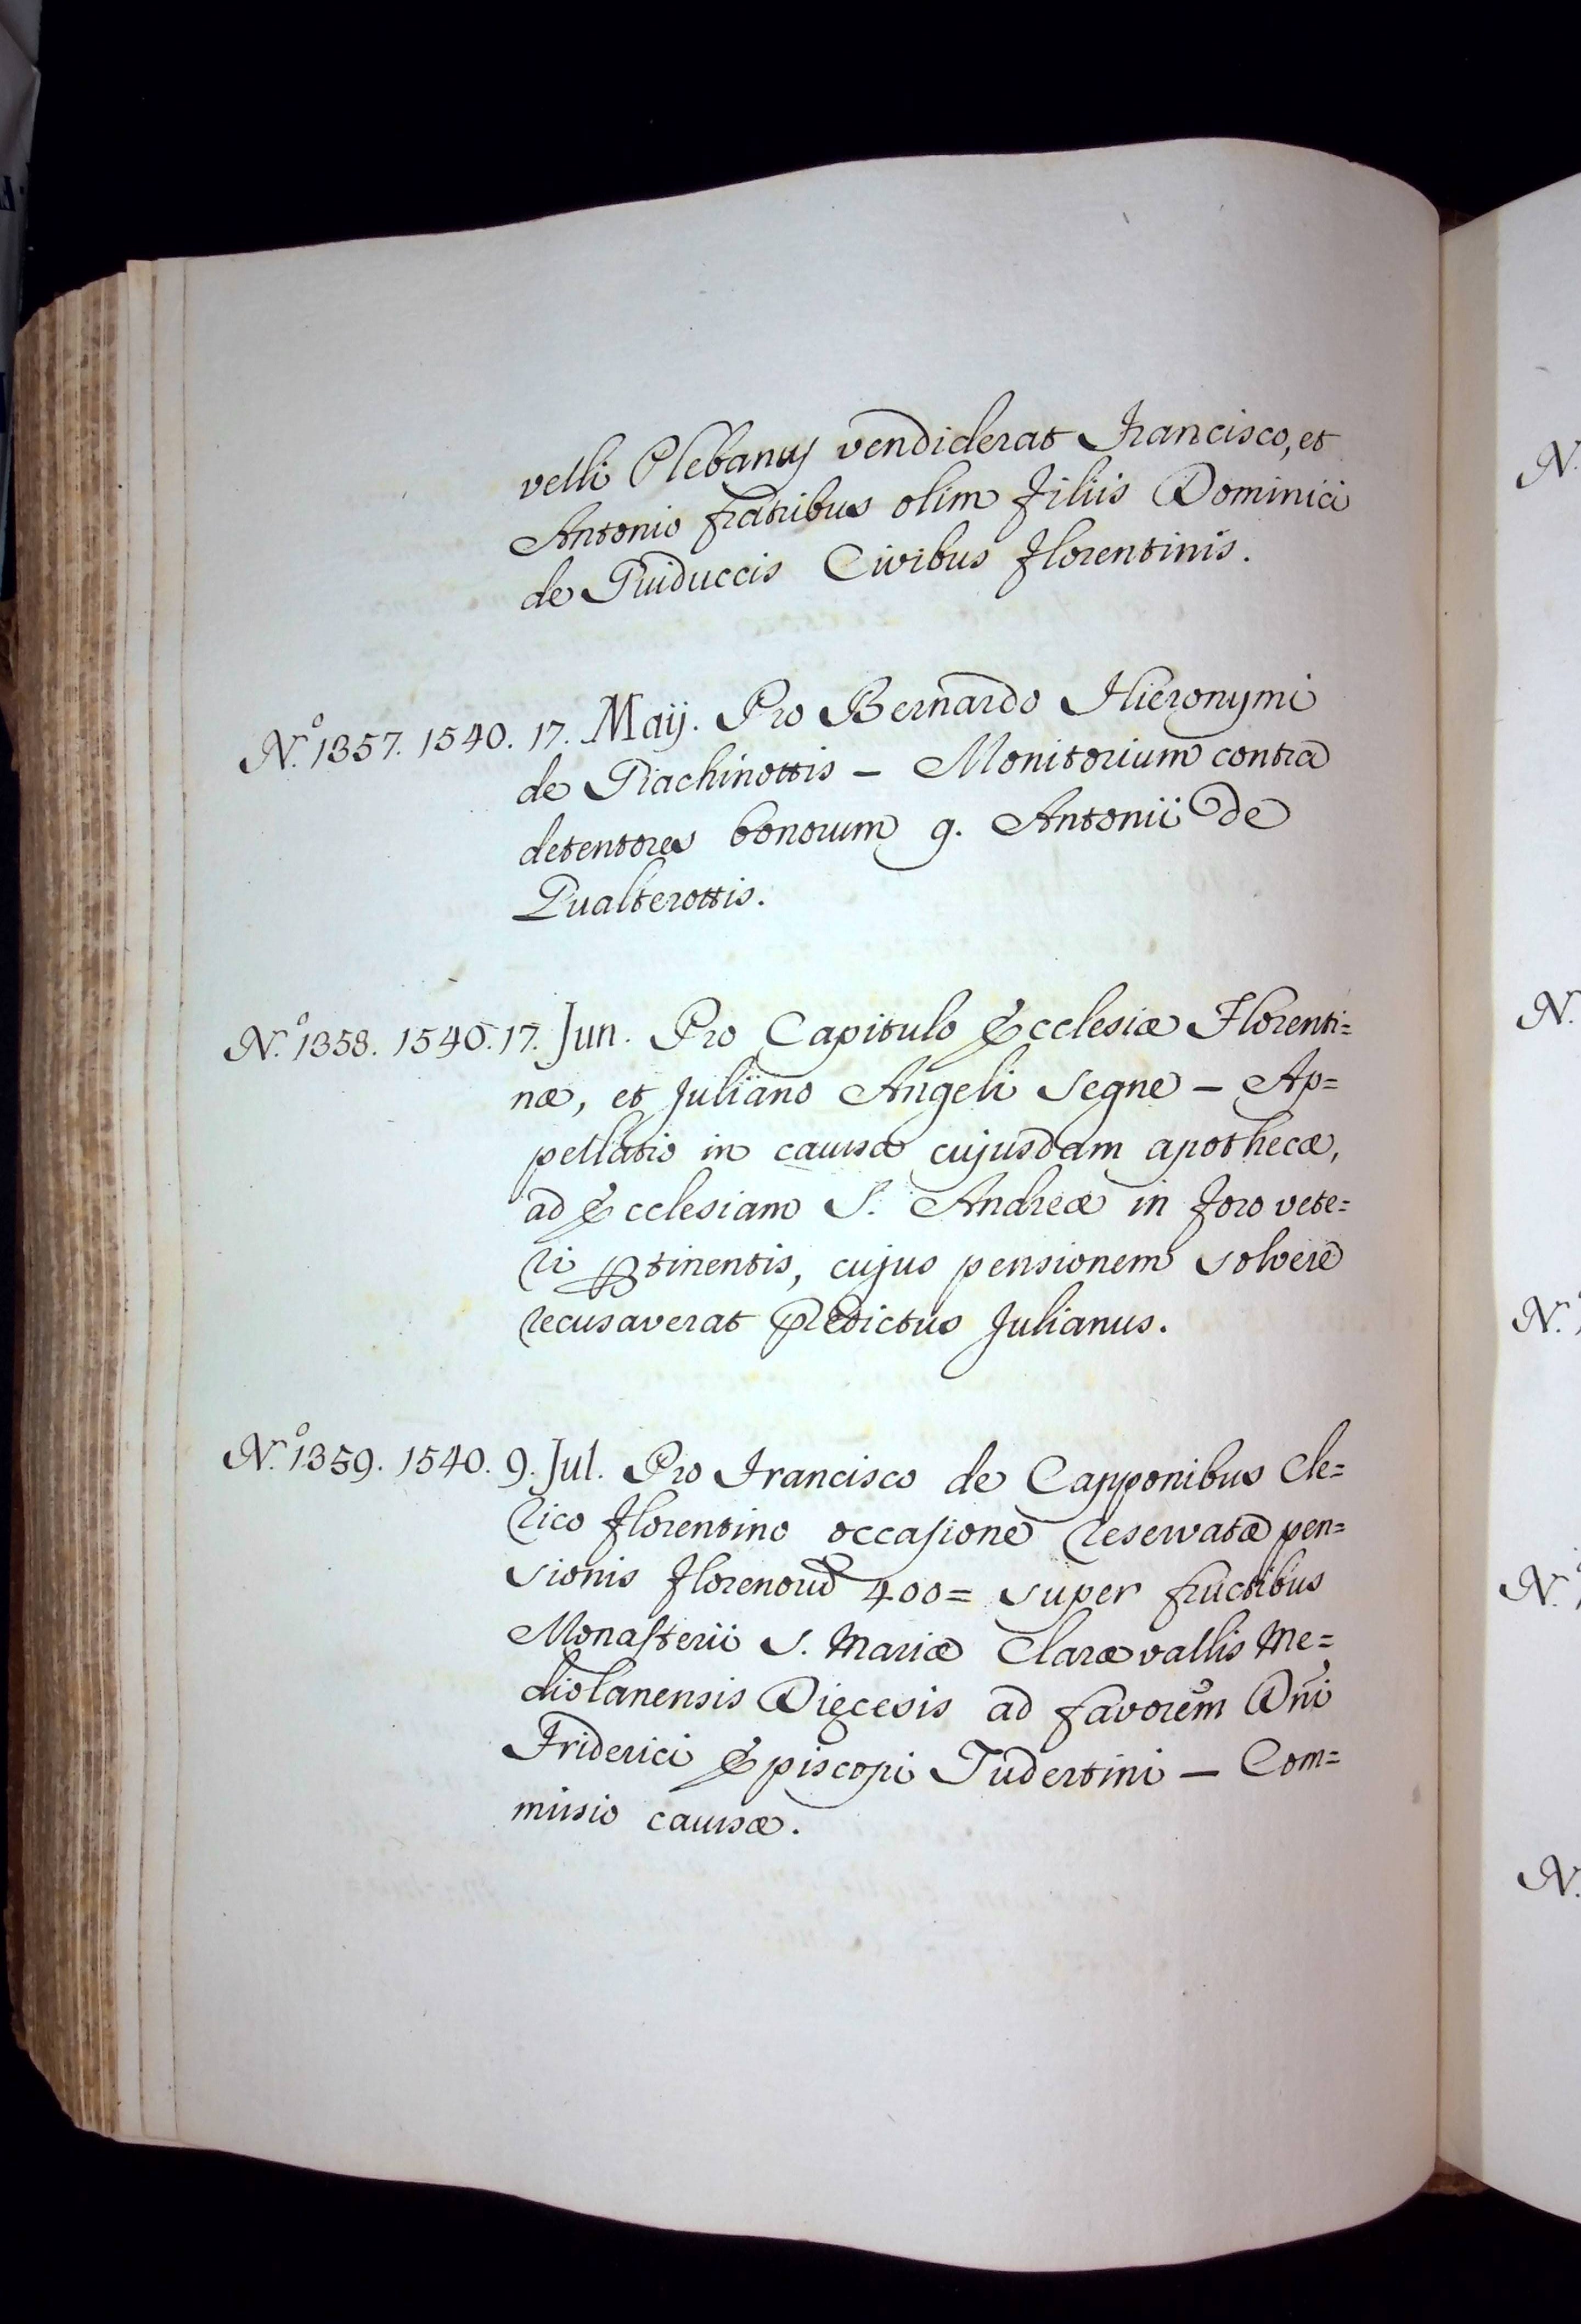 velli Plebanus vendiderat Francisco, et
Antonio fratribus olim Filiis Dominici
de Guiduccis Civibus Florentinis.
N.º 1357. 1540. 17. Maij. Pro Bernardo Hieronymi
de Giachinottis – Monitorium contra
detentores bonorum q. Antonii de
Gualterottis.
N.º 1358. 1540. 17. Jun. Pro Capitulo Ecclesiæ Florenti=
næ, et Juliano Angeli Segne – Ap=
pellatio in causa cujusdam apothecæ,
ad Ecclesiam S. Andreæ in Foro vete=
ri ptinentis, cujus pensionem solvere
recusaverat predictus Julianus.
N.º 1359. 1540. 9. Jul. Pro Francisco de Capponibus Cle=
rico Florentino occasione reservatæ pen=
sionis Florenorũ 400= super fructibus
Monasterii S. Mariæ Claræ vallis Me=
diolanensis Diecesis ad favorem Dñi
Friderici Episcopi Tudertini – Com=
missio causæ.
N.
N.
N.
N.
N.